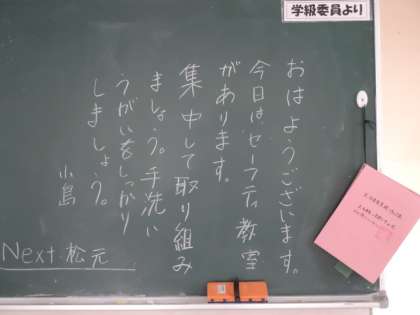 学級委員より
おはようございます。
今日はセーフティ教室
があります。
集中して取り組み
ましょう。手洗い
うがいをしっかり
しましょう。
小島
Next.松元